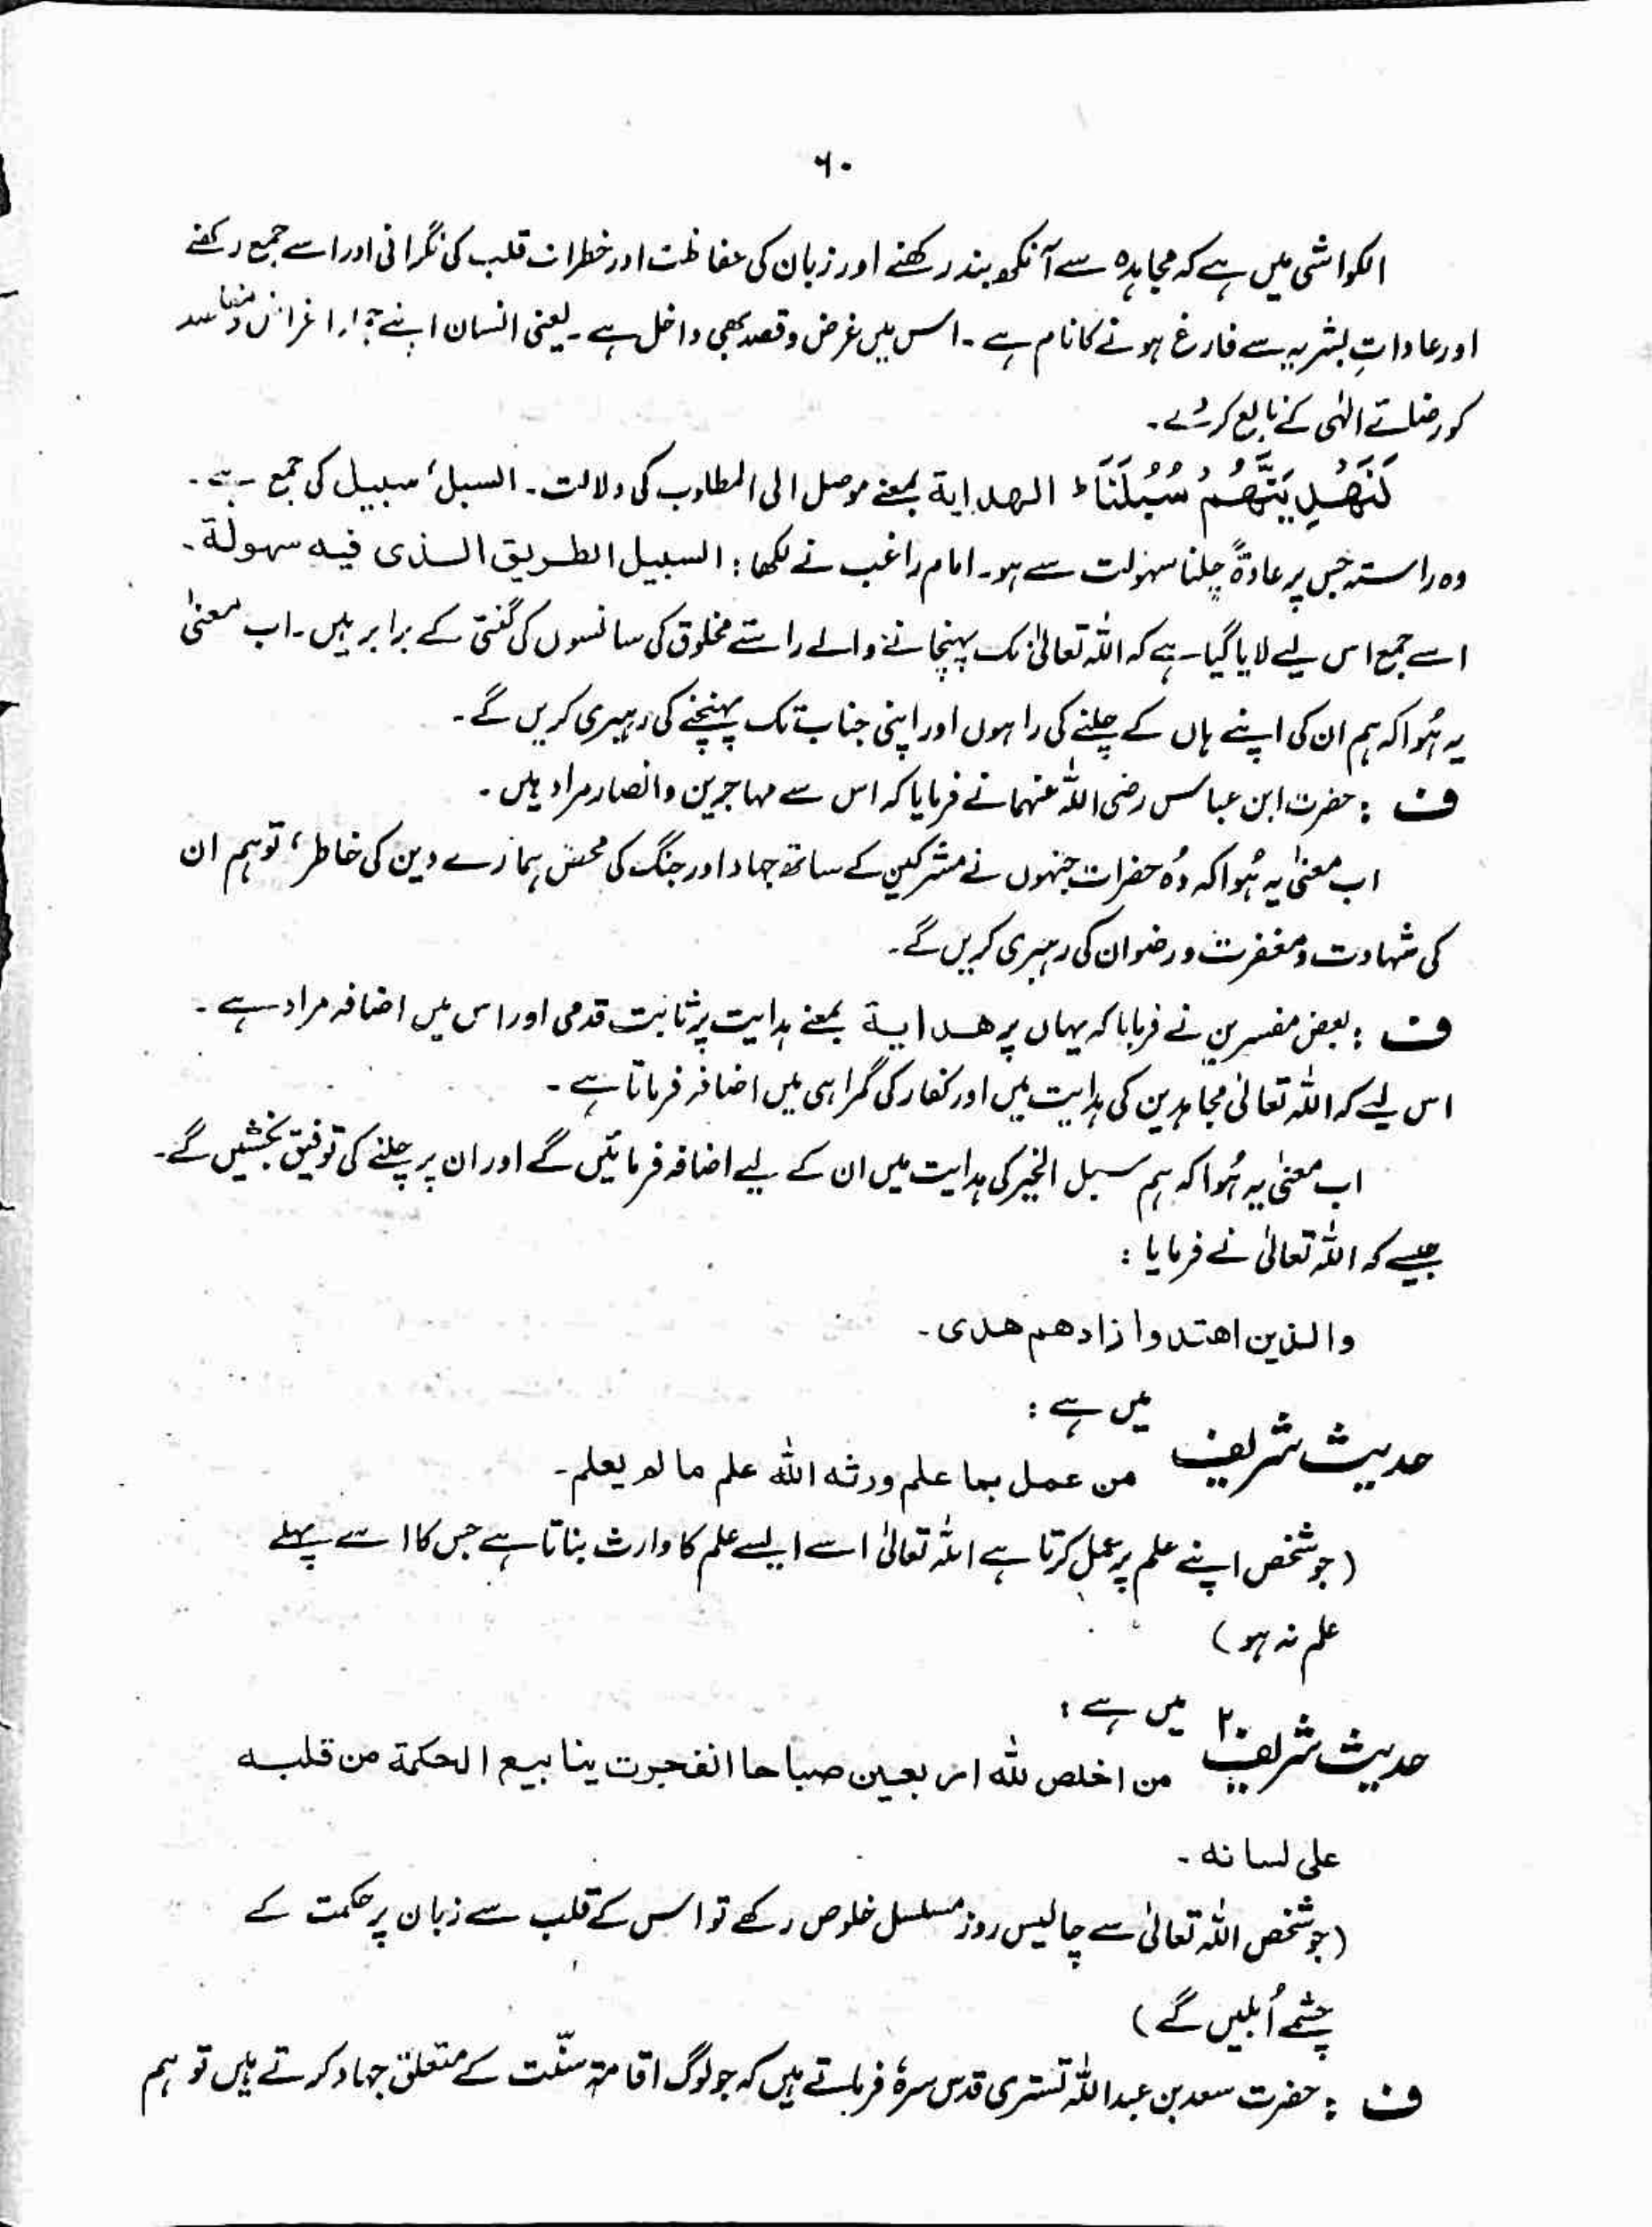 ٦٠
الکواشی میں ہے کہ مجاہدہ سے آنکھ بند رکھنے اور زبان کی حفاظت اور خطرات قلب کی نگرانی اور اسے جمع رکھنے
اور عاداتِ بشریہ سے فارغ ہونے کا نام ہے ۔ اس میں غرض و قصد بھی داخل ہے ۔ یعنی انسان اپنے جملہ اغراض و مقاصد
کو رضائے الٰہی کے تابع کر دے ۔
لَنَهْدِيَنَّهُمْ سُبُلَنَا ط الهداية بمعنے موصل الی المطلوب کی دلالت ۔ السبل، سبیل کی جمع ہے ۔
وہ راستہ جس پر عادۃً چلنا سہولت سے ہو ۔ امام راغب نے لکھا : السبیل الطریق الذی فیه سهولة ۔
اسے جمع اس لیے لایا گیا ہے کہ اللہ تعالیٰ تک پہنچانے والے راستے مخلوق کی سانسوں کی گنتی کے برابر ہیں ۔ اب معنیٰ
یہ ہُوا کہ ہم ان کی اپنے ہاں کے چلنے کی راہوں اور اپنی جناب تک پہنچنے کی رہبری کریں گے ۔
ف : حضرت ابن عباس رضی اللہ عنہما نے فرمایا کہ اس سے مہاجرین و انصار مراد ہیں ۔
اب معنیٰ یہ ہُوا کہ وُہ حضرات جنہوں نے مشرکین کے ساتھ جہاد اور جنگ کی محض ہمارے دین کی خاطر، تو ہم ان
کی شہادت و مغفرت و رضوان کی رہبری کریں گے ۔
ف : بعض مفسرین نے فرمایا کہ یہاں پر هداية بمعنے ہدایت پر ثابت قدمی اور اس میں اضافہ مراد ہے ۔
اس لیے کہ اللہ تعالیٰ مجاہدین کی ہدایت میں اور کفار کی گمراہی میں اضافہ فرماتا ہے ۔
اب معنیٰ یہ ہُوا کہ ہم سبل الخیر کی ہدایت میں ان کے لیے اضافہ فرمائیں گے اور ان پر چلنے کی توفیق بخشیں گے ۔
جیسے کہ اللہ تعالیٰ نے فرمایا :
والذین اهتدوا زادهم هدی ۔
حدیث شریف میں ہے :
من عمل بما علم ورثه الله علم ما لم یعلم ۔
( جو شخص اپنے علم پر عمل کرتا ہے اللہ تعالیٰ اسے ایسے علم کا وارث بناتا ہے جس کا اسے پہلے
علم نہ ہو )
حدیث شریف ۲ میں ہے :
من اخلص لله اربعین صباحا انفجرت ینابیع الحکمة من قلبه
علی لسانه ۔
( جو شخص اللہ تعالیٰ سے چالیس روز مسلسل خلوص رکھے تو اس کے قلب سے زبان پر حکمت کے
چشمے اُبلیں گے )
ف : حضرت سعد بن عبداللہ تستری قدس سرہٗ فرماتے ہیں کہ جو لوگ اقامۃ سنّت کے متعلق جہاد کرتے ہیں تو ہم